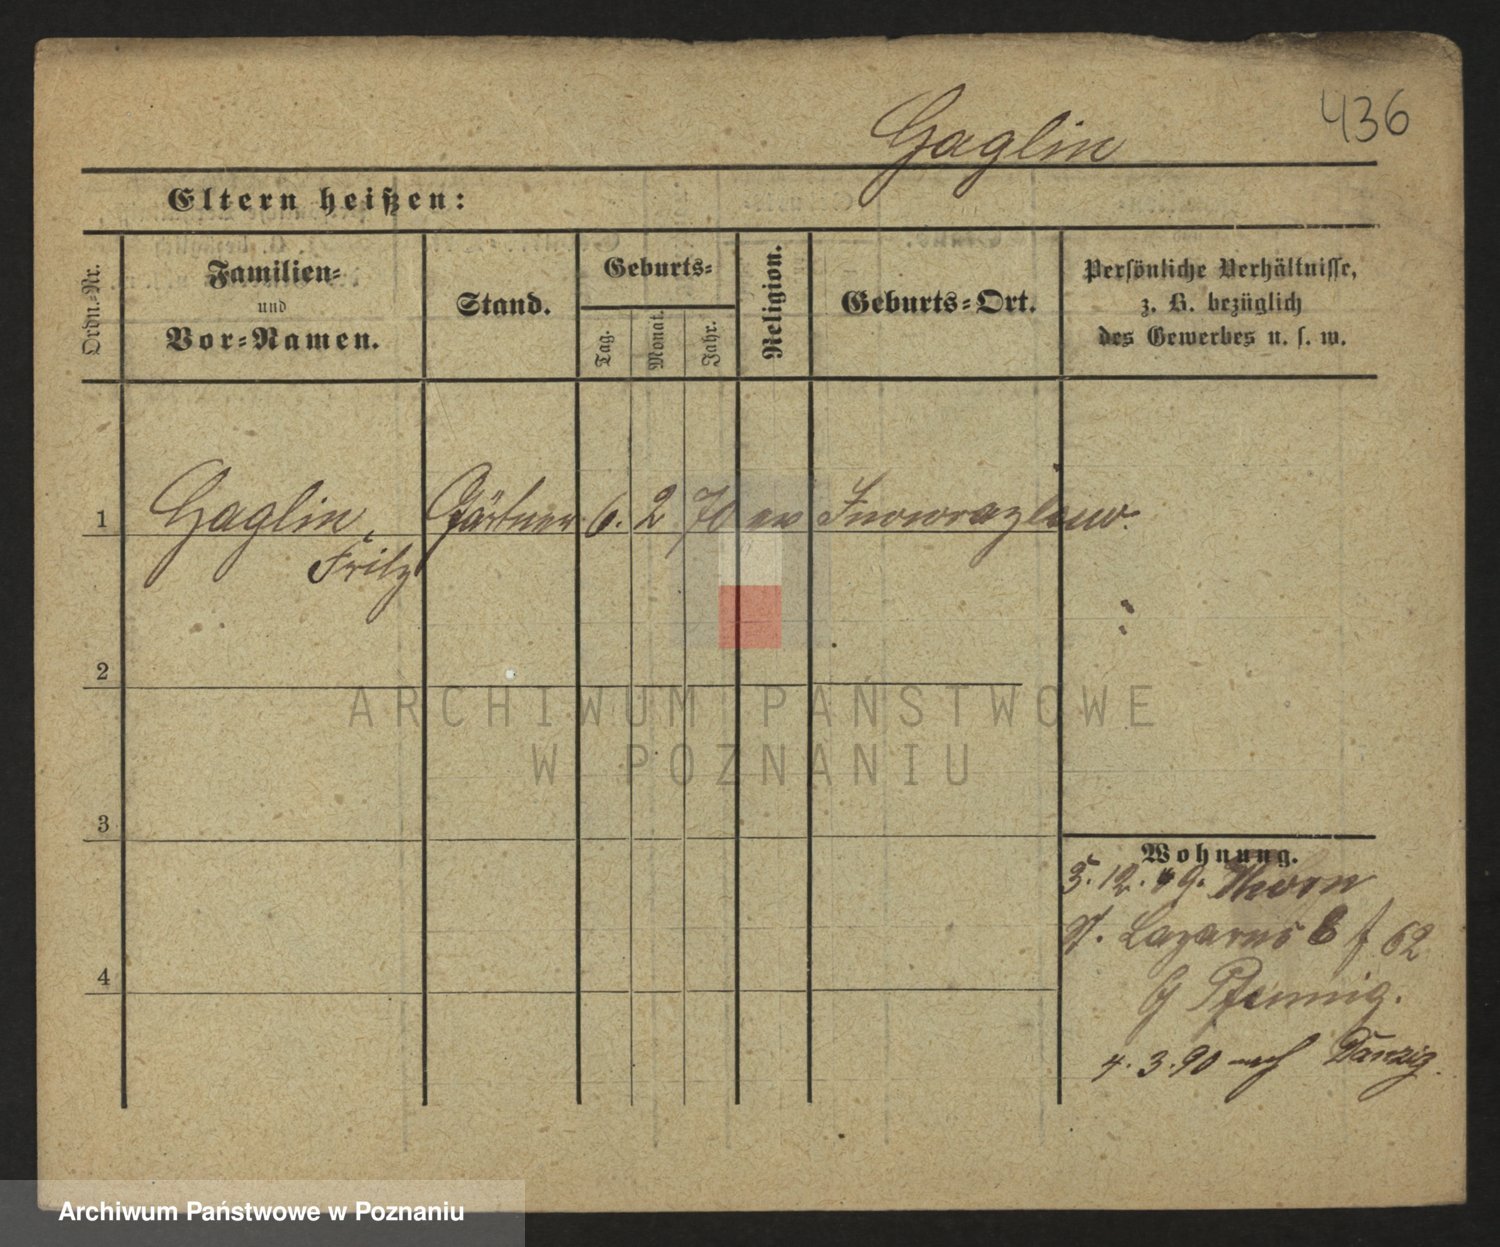 436
Gaglin
Eltern heißen:
Ordn.-Nr.
Familien-
und
Vor-Namen.
Stand.
Geburts-
Tag.
Monat.
Jahr.
Religion.
Geburts-Ort.
Persönliche Verhältnisse,
z. B. bezüglich
des Gewerbes u. s. w.
1
Gaglin, Gärtner 6. 2 70 ev Inowrazlaw.
Fritz
2
3
4
Wohnung.
3. 12. 89. Thorn
St. Lazarus 8 f 62
Pfennig.
4. 3. 90 nach Danzig.
ARCHIWUM PAŃSTWOWE
W POZNANIU
Archiwum Państwowe w Poznaniu